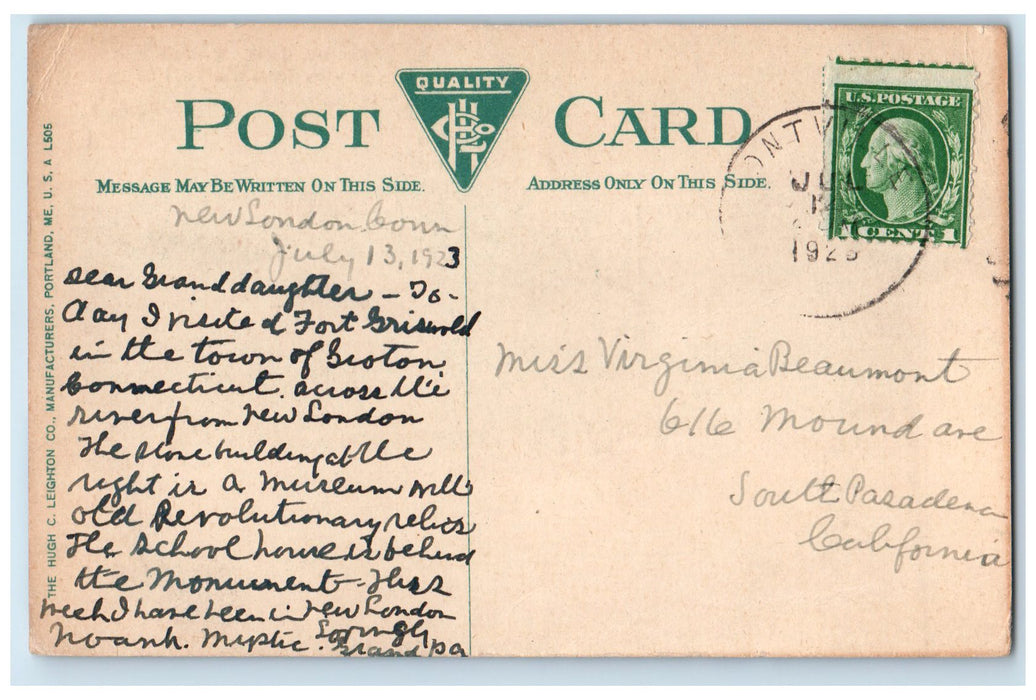 POST CARD
QUALITY
MESSAGE MAY BE WRITTEN ON THIS SIDE.
ADDRESS ONLY ON THIS SIDE.
THE HUGH C. LEIGHTON CO., MANUFACTURERS, PORTLAND, ME. U. S. A L505
U.S. POSTAGE
1 CENT 1
JUL
1923
New London, Conn
July 13, 1923
Dear Granddaughter - To-
day I visited Fort Griswold
in the town of Groton
Connecticut. across the
river from New London
The stone building at the
right is a Museum with
old Revolutionary relics
The School house is behind
the Monument - This
week I have been in New London
Noank. Mystic. Lovingly
Grand pa
Miss Virginia Beaumont
616 Mound ave
South Pasadena
California